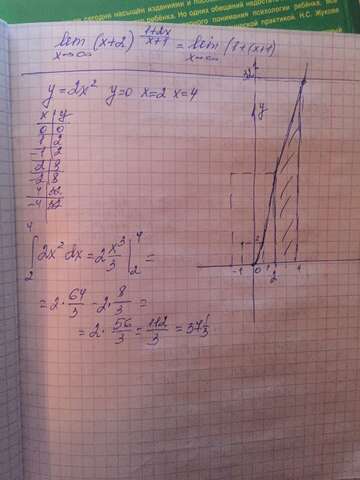 сегодня насыщен изданиями и посо
ребёнка. Но одних обещаний недостаточно
понимания психологии ребёнка, все
практикой. Н.С. Жукова
lim (x+2) 1+2x/x+1 = lim (1+(x+1)
x→∞ x→∞
y=2x² y=0 x=2 x=4
x y
0 0
1 2
-1 2
2 8
-2 8
4 32
-4 32
∫₂⁴ 2x² dx = 2 x³/3 |₂⁴ =
= 2·64/3 - 2·8/3 =
= 2·56/3 = 112/3 = 37 1/3
32
y
-1 0 1 2 4